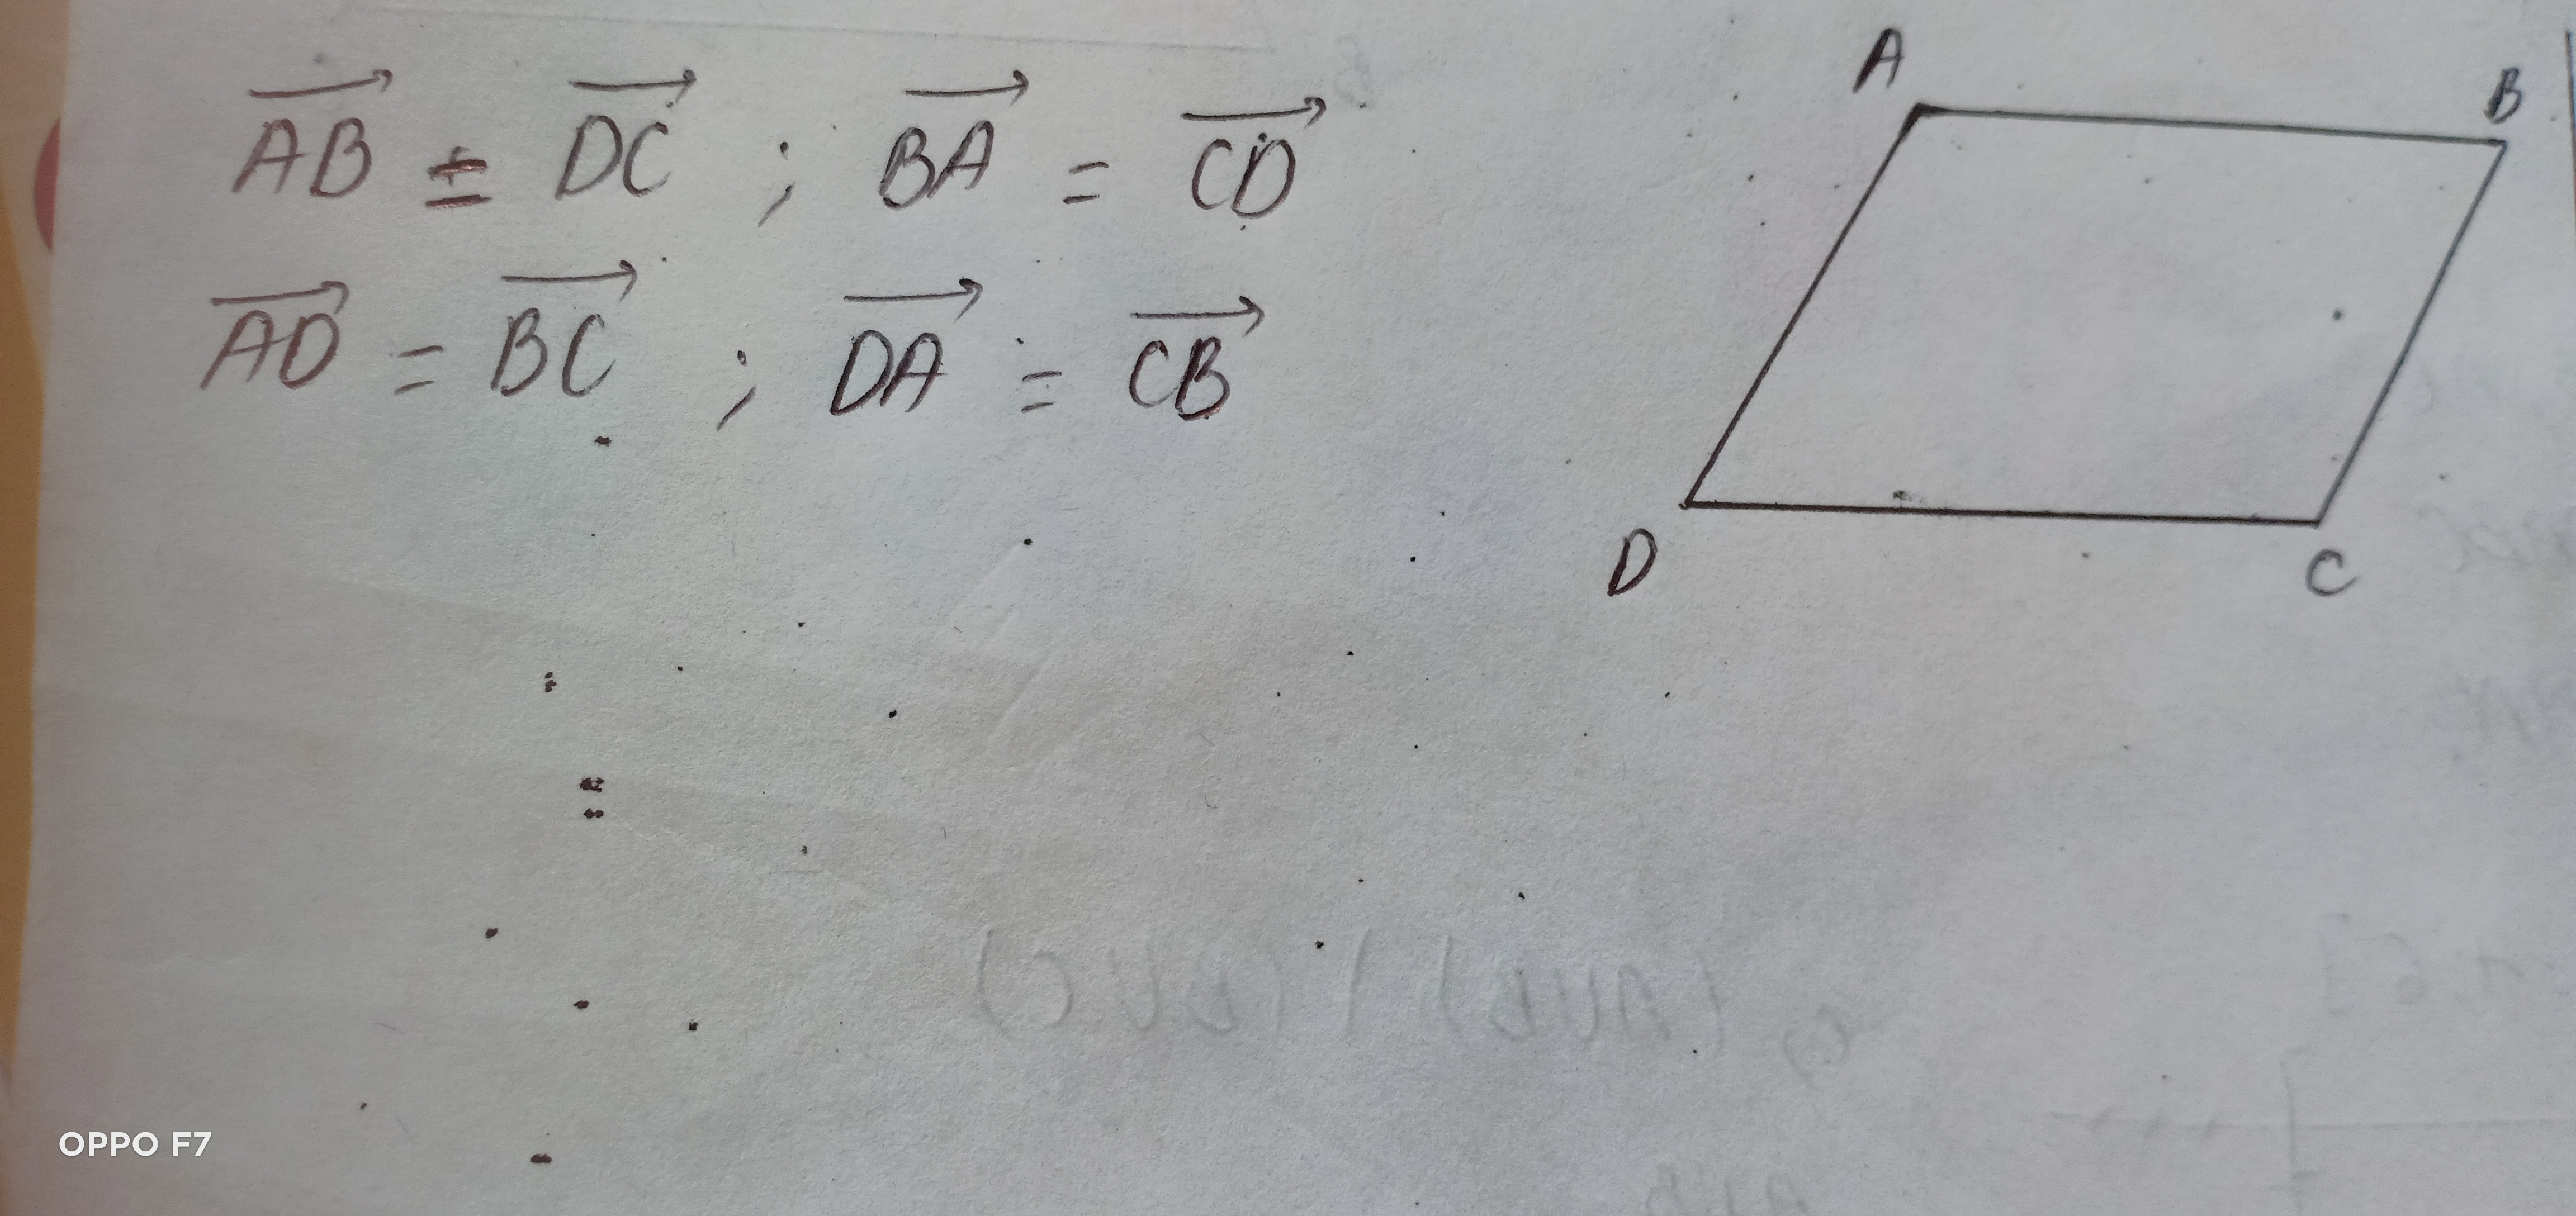 AB = DC ; BA = CD
AD = BC ; DA = CB
A
B
D
C
OPPO F7